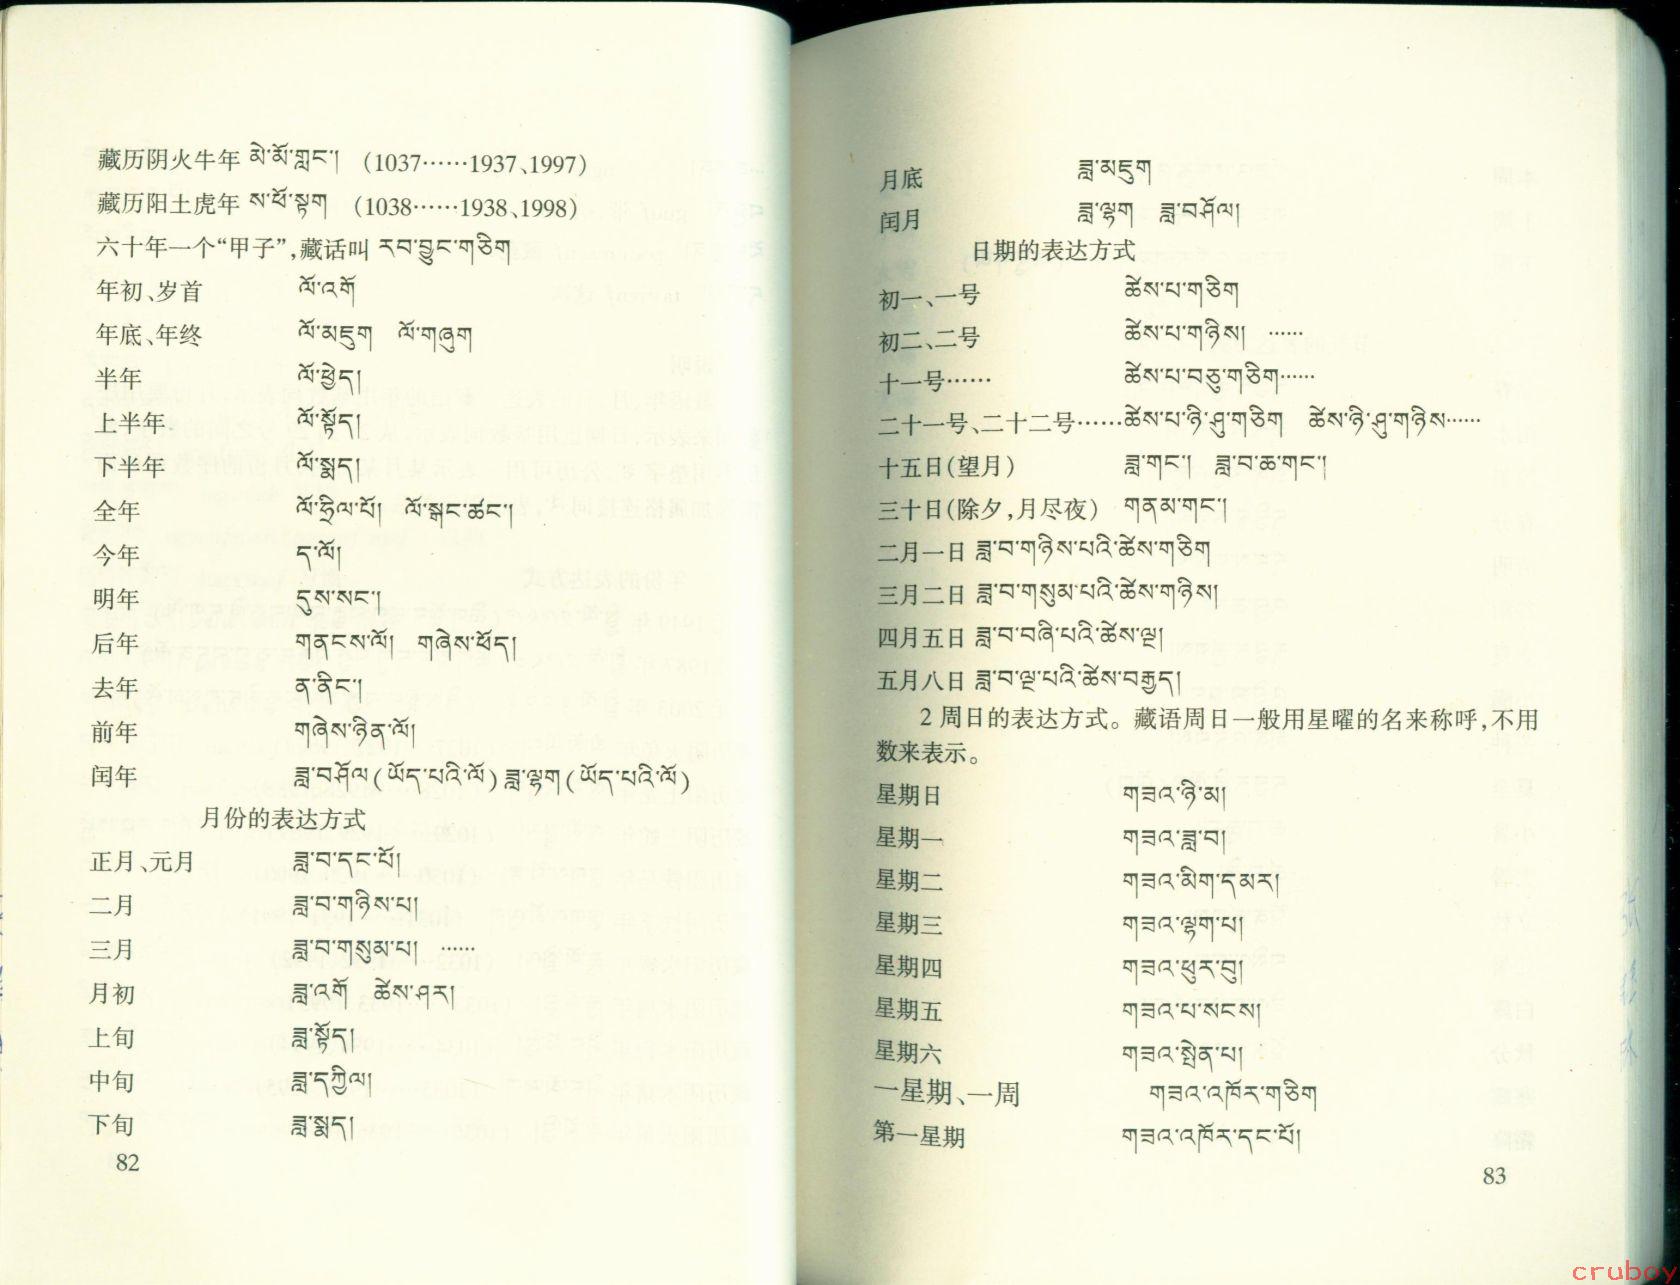 藏历阴火牛年 མེ་མོ་གླང་། (1037……1937、1997)
藏历阳土虎年 ས་ཕོ་སྟག (1038……1938、1998)
六十年一个“甲子”,藏话叫 རབ་བྱུང་གཅིག
年初、岁首 ལོ་འགོ
年底、年终 ལོ་མཇུག ལོ་གཞུག
半年 ལོ་ཕྱེད།
上半年 ལོ་སྟོད།
下半年 ལོ་སྨད།
全年 ལོ་ཧྲིལ་པོ། ལོ་སྒང་ཚང་།
今年 ད་ལོ།
明年 དུས་སང་།
后年 གནངས་ལོ། གཞེས་ཕོད།
去年 ན་ནིང་།
前年 གཞེས་ཉིན་ལོ།
闰年 ཟླ་བཤོལ(ཡོད་པའི་ལོ)ཟླ་ལྷག(ཡོད་པའི་ལོ)
月份的表达方式
正月、元月 ཟླ་བ་དང་པོ།
二月 ཟླ་བ་གཉིས་པ།
三月 ཟླ་བ་གསུམ་པ། ……
月初 ཟླ་འགོ ཚེས་ཤར།
上旬 ཟླ་སྟོད།
中旬 ཟླ་དཀྱིལ།
下旬 ཟླ་སྨད།
82
月底 ཟླ་མཇུག
闰月 ཟླ་ལྷག ཟླ་བཤོལ།
日期的表达方式
初一、一号 ཚེས་པ་གཅིག
初二、二号 ཚེས་པ་གཉིས། ……
十一号…… ཚེས་པ་བཅུ་གཅིག……
二十一号、二十二号……ཚེས་པ་ཉི་ཤུ་གཅིག ཚེས་ཉི་ཤུ་གཉིས……
十五日(望月) ཟླ་གང་། ཟླ་བ་ཆ་གང་།
三十日(除夕,月尽夜) གནམ་གང་།
二月一日 ཟླ་བ་གཉིས་པའི་ཚེས་གཅིག
三月二日 ཟླ་བ་གསུམ་པའི་ཚེས་གཉིས།
四月五日 ཟླ་བ་བཞི་པའི་ཚེས་ལྔ།
五月八日 ཟླ་བ་ལྔ་པའི་ཚེས་བརྒྱད།
2 周日的表达方式。藏语周日一般用星曜的名来称呼,不用
数来表示。
星期日 གཟའ་ཉི་མ།
星期一 གཟའ་ཟླ་བ།
星期二 གཟའ་མིག་དམར།
星期三 གཟའ་ལྷག་པ།
星期四 གཟའ་ཕུར་བུ།
星期五 གཟའ་པ་སངས།
星期六 གཟའ་སྤེན་པ།
一星期、一周 གཟའ་འཁོར་གཅིག
第一星期 གཟའ་འཁོར་དང་པོ།
83
cruboy